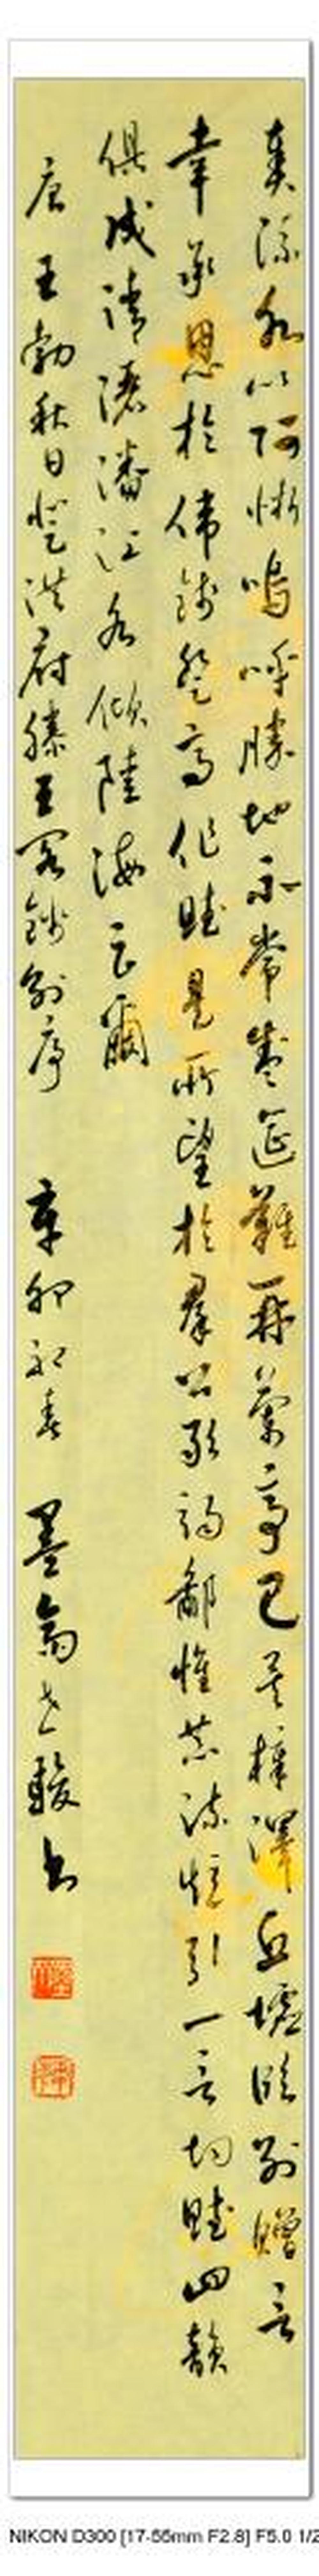 奏流水以何慚嗚呼勝地不常盛筵難再蘭亭已矣梓澤丘墟臨別贈言
幸承恩於偉餞登高作賦是所望於羣公敢竭鄙恭疏短引一言均賦四韻
俱成請灑潘江各傾陸海云爾
唐王勃秋日登洪府滕王閣餞別序 辛卯初春 墨書
NIKON D300 [17-55mm F2.8] F5.0 1/2